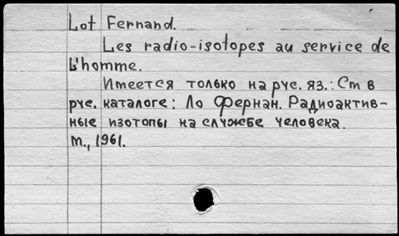 Lot Fernand.
Les radio-isotopes au service de
L'homme.
Имеется только на рус. яз.: См в
рус. каталоге: Ло Фернан. Радиоактив-
ные изотопы на службе человека.
М., 1961.